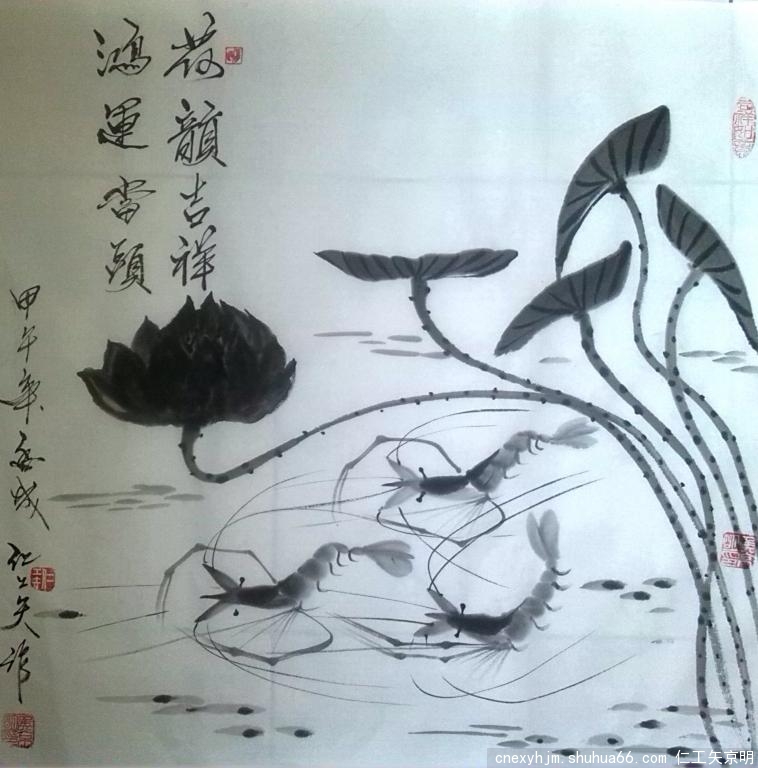 荷韻吉祥
鴻運當頭
甲午年
仁工矢作
吉祥如意
cnexyhjm.shuhua66.com 仁工矢京明